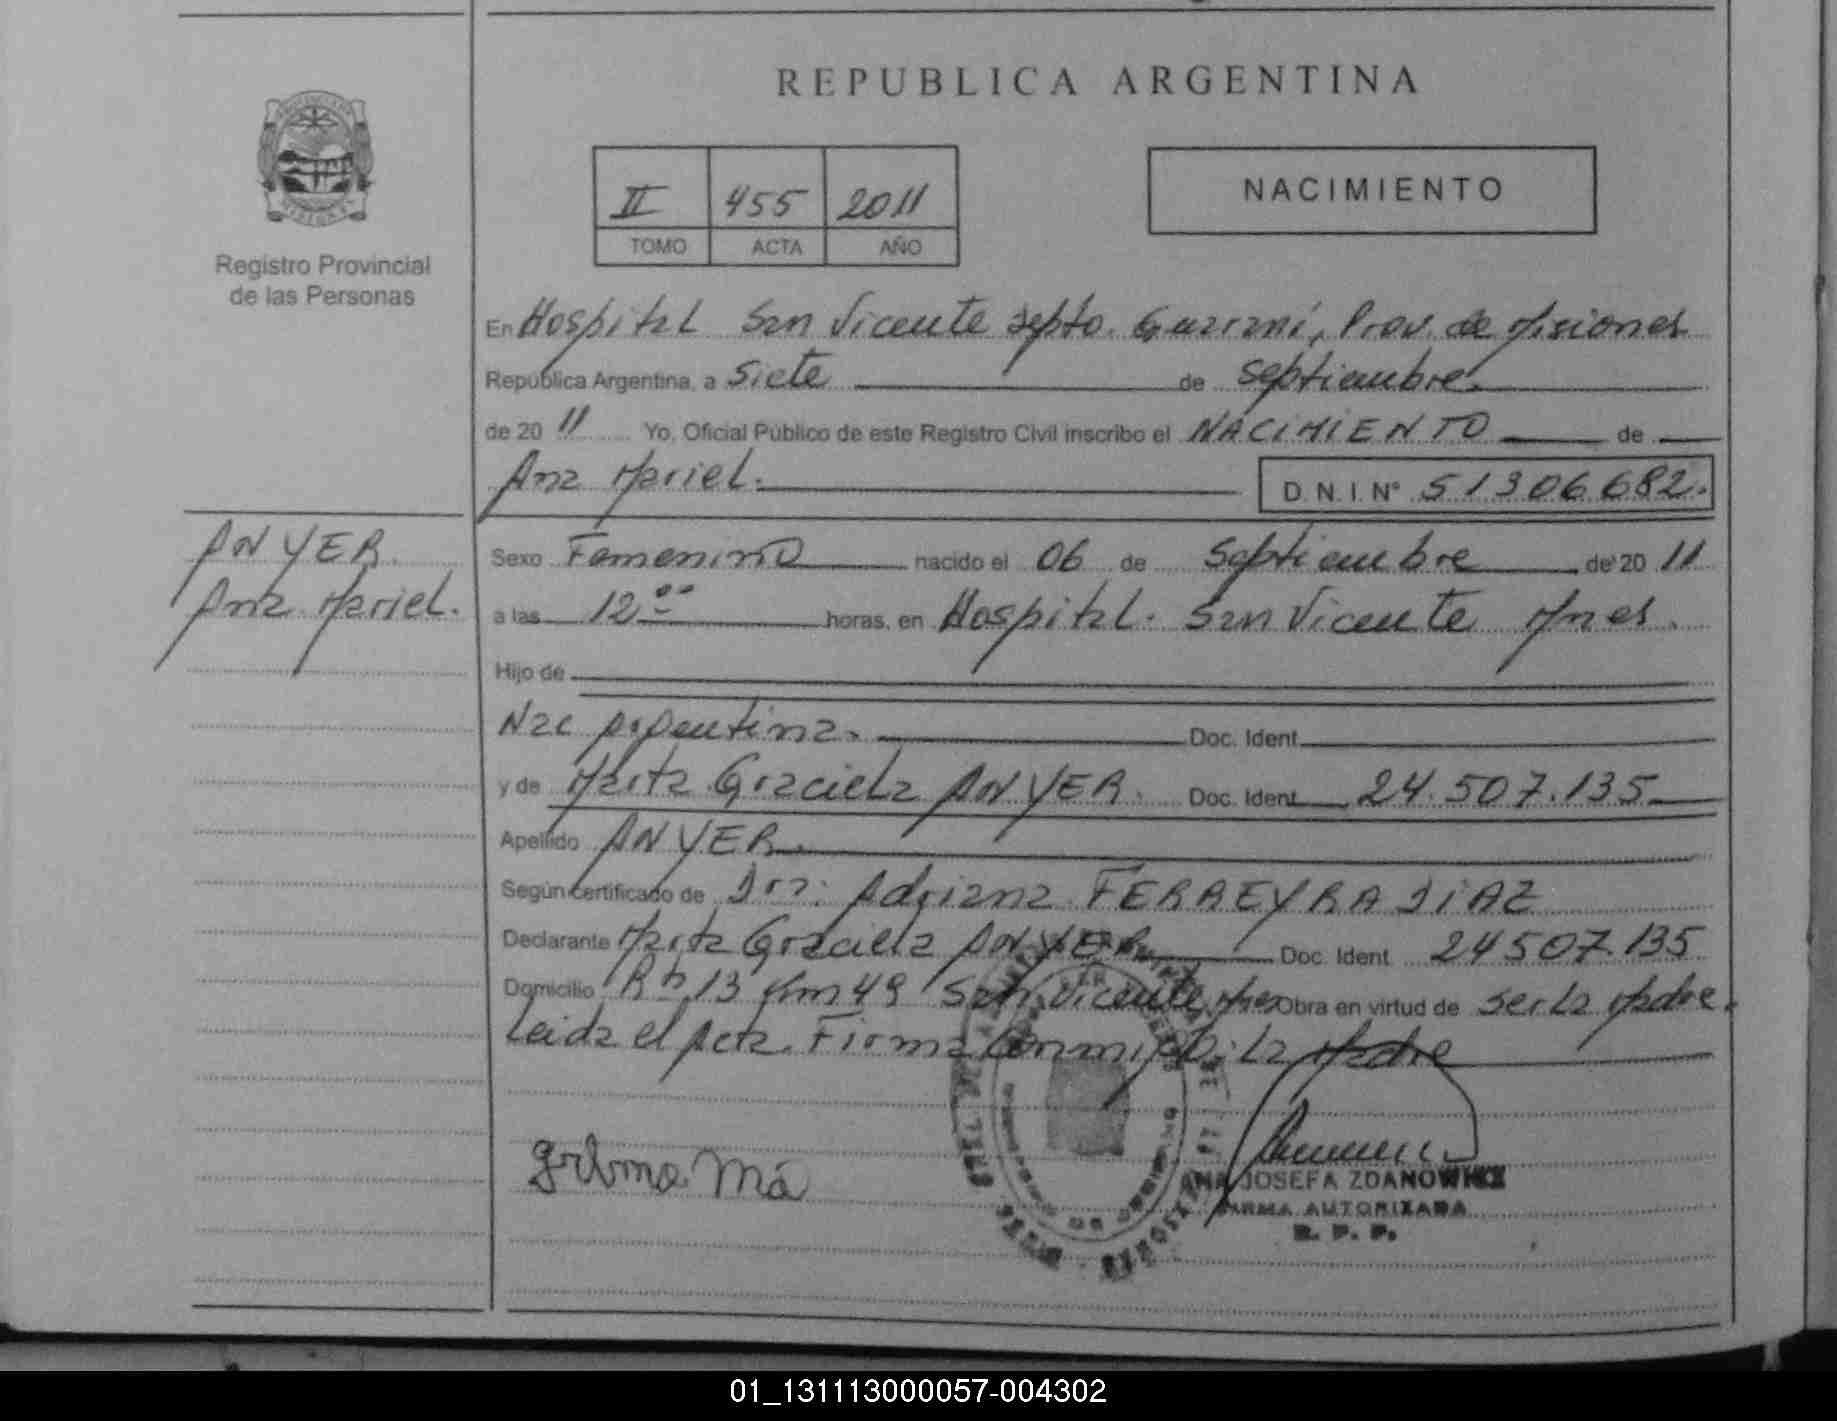 REPUBLICA ARGENTINA
NACIMIENTO
II 455 2011
TOMO ACTA AÑO
Registro Provincial
de las Personas
En Hospital San Vicente Depto. Guarani, Prov. de Misiones
República Argentina, a Siete de Septiembre.
de 20 11 Yo, Oficial Público de este Registro Civil inscribo el NACIMIENTO de
Ana Mariel. D.N.I. N° 51306682.
ANYER.
Ana Mariel.
Sexo Femenino nacido el 06 de Septiembre de 20 11
a las 12 00 horas, en Hospital. San Vicente Mnes.
Hijo de
Nac Argentina. Doc. Ident.
y de Marta Graciela ANYER. Doc. Ident. 24.507.135
Apellido ANYER.
Según certificado de Dra: Adriana FERREYRA DIAZ
Declarante Marta Graciela ANYER Doc. Ident. 24507.135
Domicilio Rta 13 Km 49 San Vicente Mnes Obra en virtud de Ser La Madre.
Leida el Acta. Firma Conmigo: La Madre
ANA JOSEFA ZDANOWICZ
FIRMA AUTORIZADA
R. P. P.
01_131113000057-004302